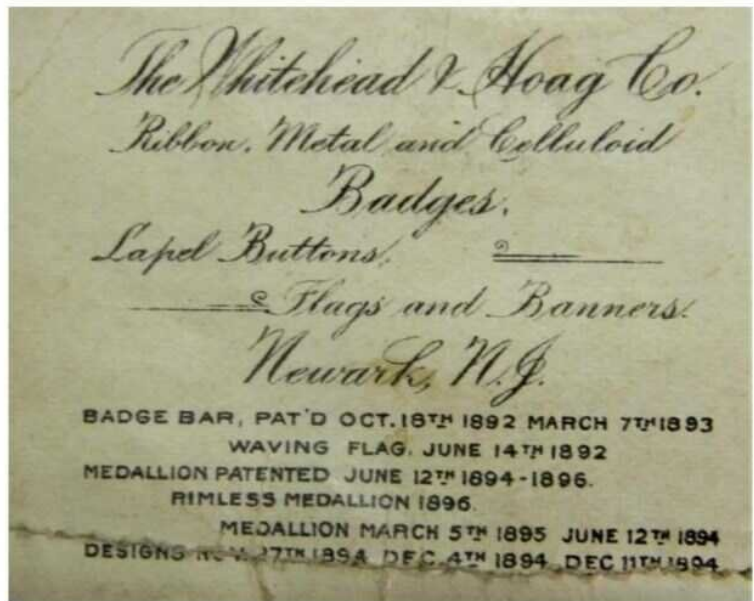 The Whitehead & Hoag Co.
Ribbon, Metal and Celluloid
Badges,
Lapel Buttons,
Flags and Banners.
Newark, N.J.
BADGE BAR, PAT'D OCT. 18TH 1892 MARCH 7TH 1893
WAVING FLAG, JUNE 14TH 1892
MEDALLION PATENTED JUNE 12TH 1894-1896.
RIMLESS MEDALLION 1896.
MEDALLION MARCH 5TH 1895 JUNE 12TH 1894
DESIGNS NOV. 27TH 1894 DEC. 4TH 1894 DEC 11TH 1894